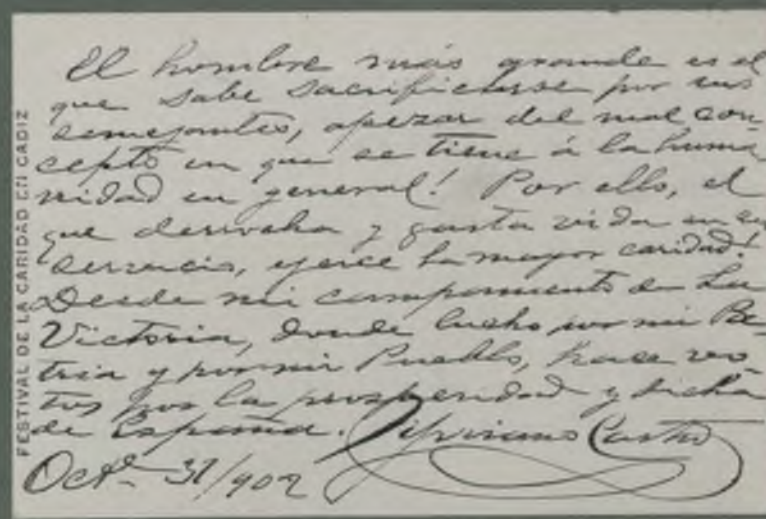 El hombre más grande es el
que sabe sacrificarse por sus
semejantes, apezar del mal con-
cepto en que se tiene á la huma
nidad en general! Por ello, el
que derrocha y gasta vida en su
servicio, ejerce la mayor caridad!
Desde mi campamento de La
Victoria, donde lucho por mi Pa-
tria y por mi Pueblo, hace vo-
tos por la prosperidad y dicha
de España. Cipriano Castro
Oct.e 31/902
FESTIVAL DE LA CARIDAD EN CADIZ